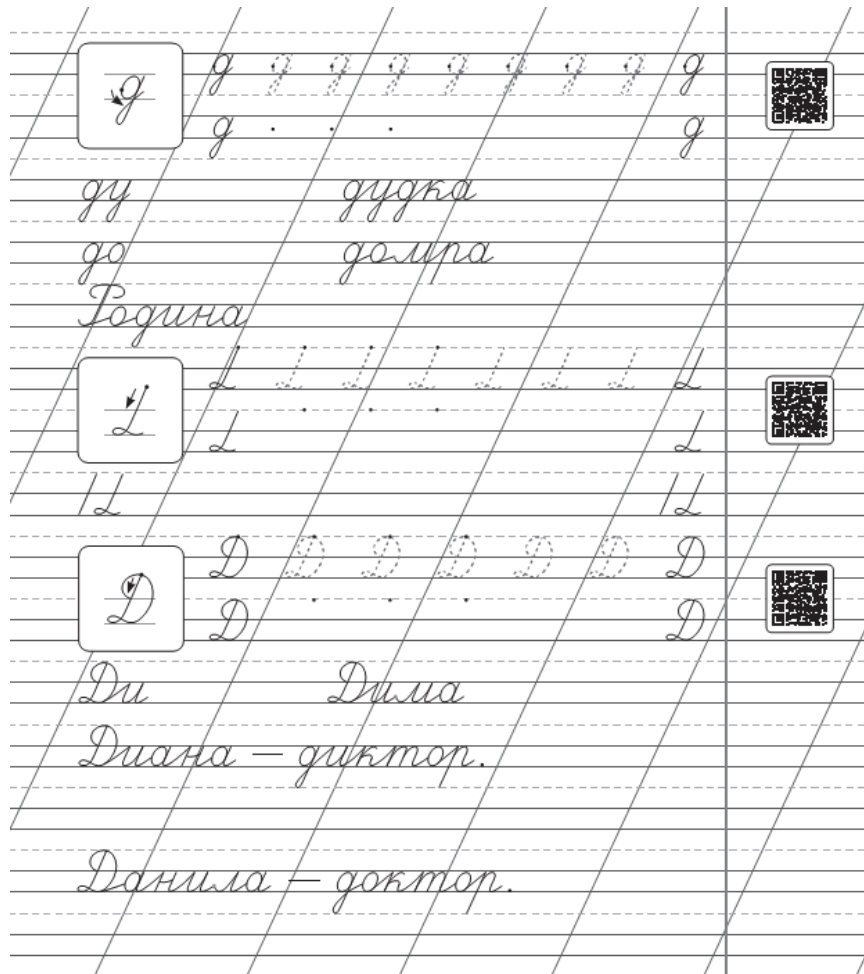 д д д д д д д д д д
д д
ду дудка
до домра
Родина
Д Д Д Д Д Д
Д Д
Ди Дима
Диана — диктор.
Данила — доктор.